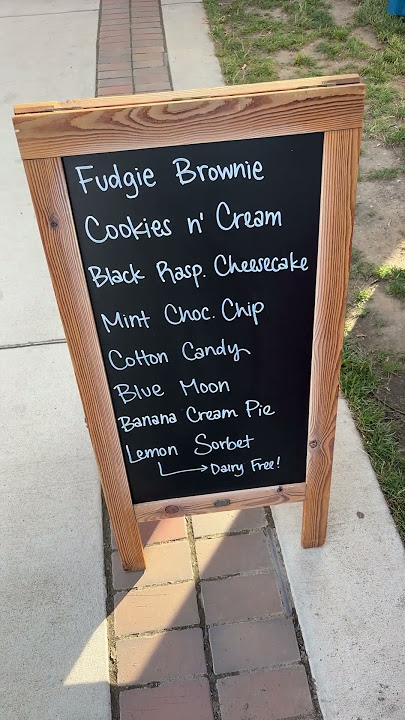 Fudgie Brownie
Cookies n' Cream
Black Rasp. Cheesecake
Mint Choc. Chip
Cotton Candy
Blue Moon
Banana Cream Pie
Lemon Sorbet
Dairy Free!